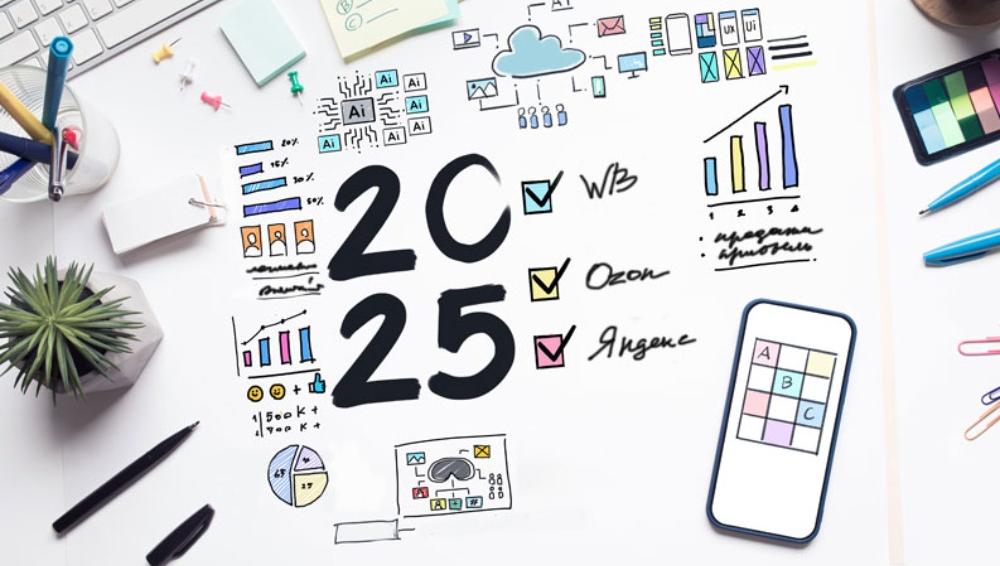 B
C
Ai
Ai
Ai
Ai
Ai
Ai
Ai
Ai
Ai
UX
Ui
20%
15%
30%
50%
20
25
WB
Ozon
Яндекс
1 2 3 4
продажи
прибыль
500 K +
700 K +
65
25
#
A
B
C